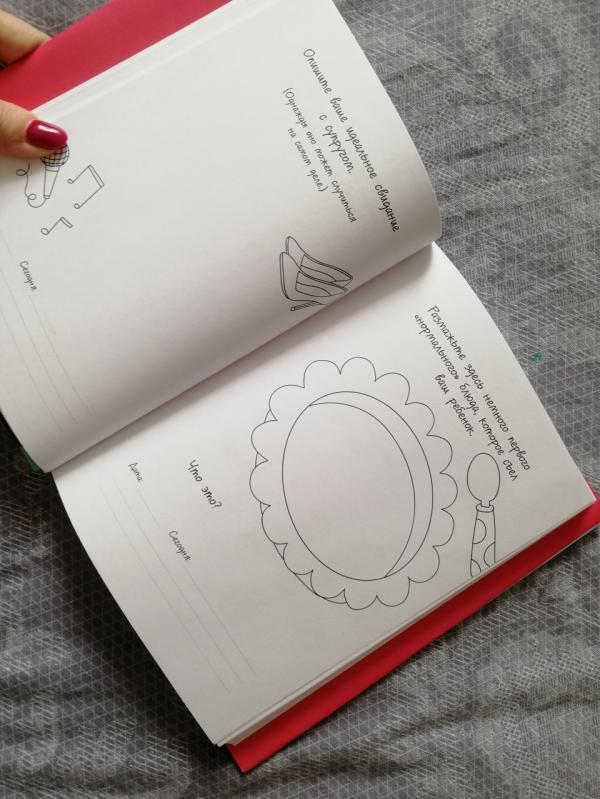 Опишите ваше идеальное свидание
с супругом.
(Однажды оно может случиться
на самом деле.)
Сегодня
Размажьте здесь немного первого
«нормального» блюда, которое съел
ваш ребенок.
Что это?
Дата:
Сегодня